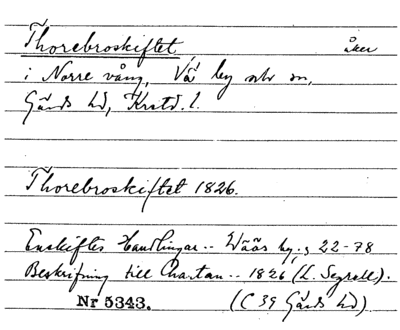 Thorebroskiftet åker
i Norre vång, Vä by och sn,
Gärds hd, Krstd. l.
Thorebroskiftet 1826.
Enskiftes Handlingar -- Wääs by; s 22-78
Beskrifning till Chartan -- 1826 (L. Segrell).
Nr 5343. (C 39 Gärds hd)